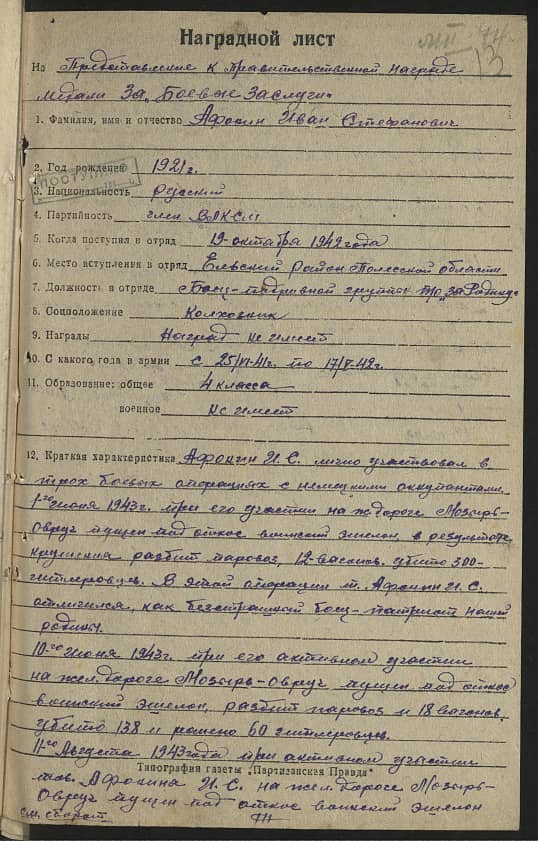 Наградной лист
74
13
На Представление к Правительственной награде
медали За „Боевые Заслуги"
1. Фамилия, имя и отчество Афонин Иван Стефанович
2. Год рождения 1921 г.
ПОСТУПИЛ
3. Национальность русский
4. Партийность член ВЛКСМ
5. Когда поступил в отряд 19-октября 1942 года
6. Место вступления в отряд Ельский район Полесской области
7. Должность в отряде Боец-подрывной группы п/о „За Родину"
8. Соцположение Колхозник
9. Награды Наград не имеет
10. С какого года в армии с 25/VI-41г. по 17/X-42г.
11. Образование: общее 4 класса
военное не имеет
12. Краткая характеристика Афонин И.С. лично участвовал в
трех боевых операциях с немецкими оккупантами.
1го июня 1943г. при его участии на ж. дороге Мозырь-
Овруч пущен под откос воинский эшелон, в результате
крушения разбит паровоз, 12-вагонов. убито 300-
гитлеровцев. В этой операции т. Афонин И.С.
отличился, как безстрашный боец-патриот нашей
родины.
10-го июня 1943г. при его активном участии
на жел. дороге Мозырь-Овруч пущен под откос
воинский эшелон, разбит паровоз и 18 вагонов,
убито 138 и ранено 60 гитлеровцев.
11го Августа 1943 года при активном участии
Типография газеты „Партизанская Правда"
тов. Афонина И.С. на жел. дороге Мозырь-
Овруч пущен под откос воинский эшелон
см. оборот.